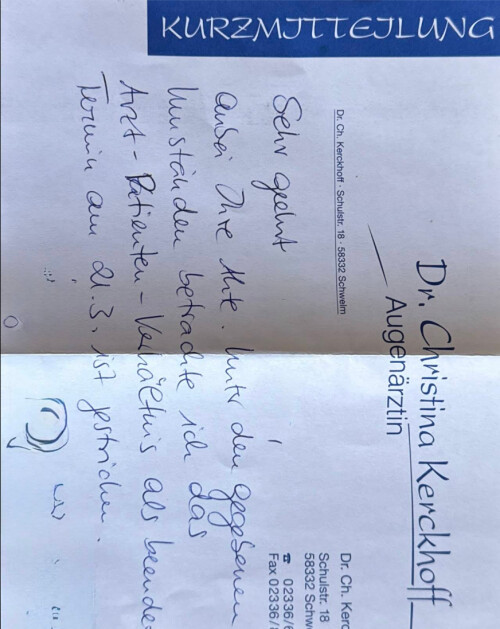 KURZMITTEILUNG
Dr. Christina Kerckhoff
Augenärztin
Dr. Ch. Kerckhoff · Schulstr. 18 · 58332 Schwelm
Dr. Ch. Kerc
Schulstr. 18
58332 Schw
☎ 02336/6
Fax 02336/8
Sehr geehrt
anbei Ihre Akte. Unter den gegebenen
Umständen betrachte ich das
Arzt-Patienten-Verhältnis als beendet
Termin am 21.3. ist gestrichen.